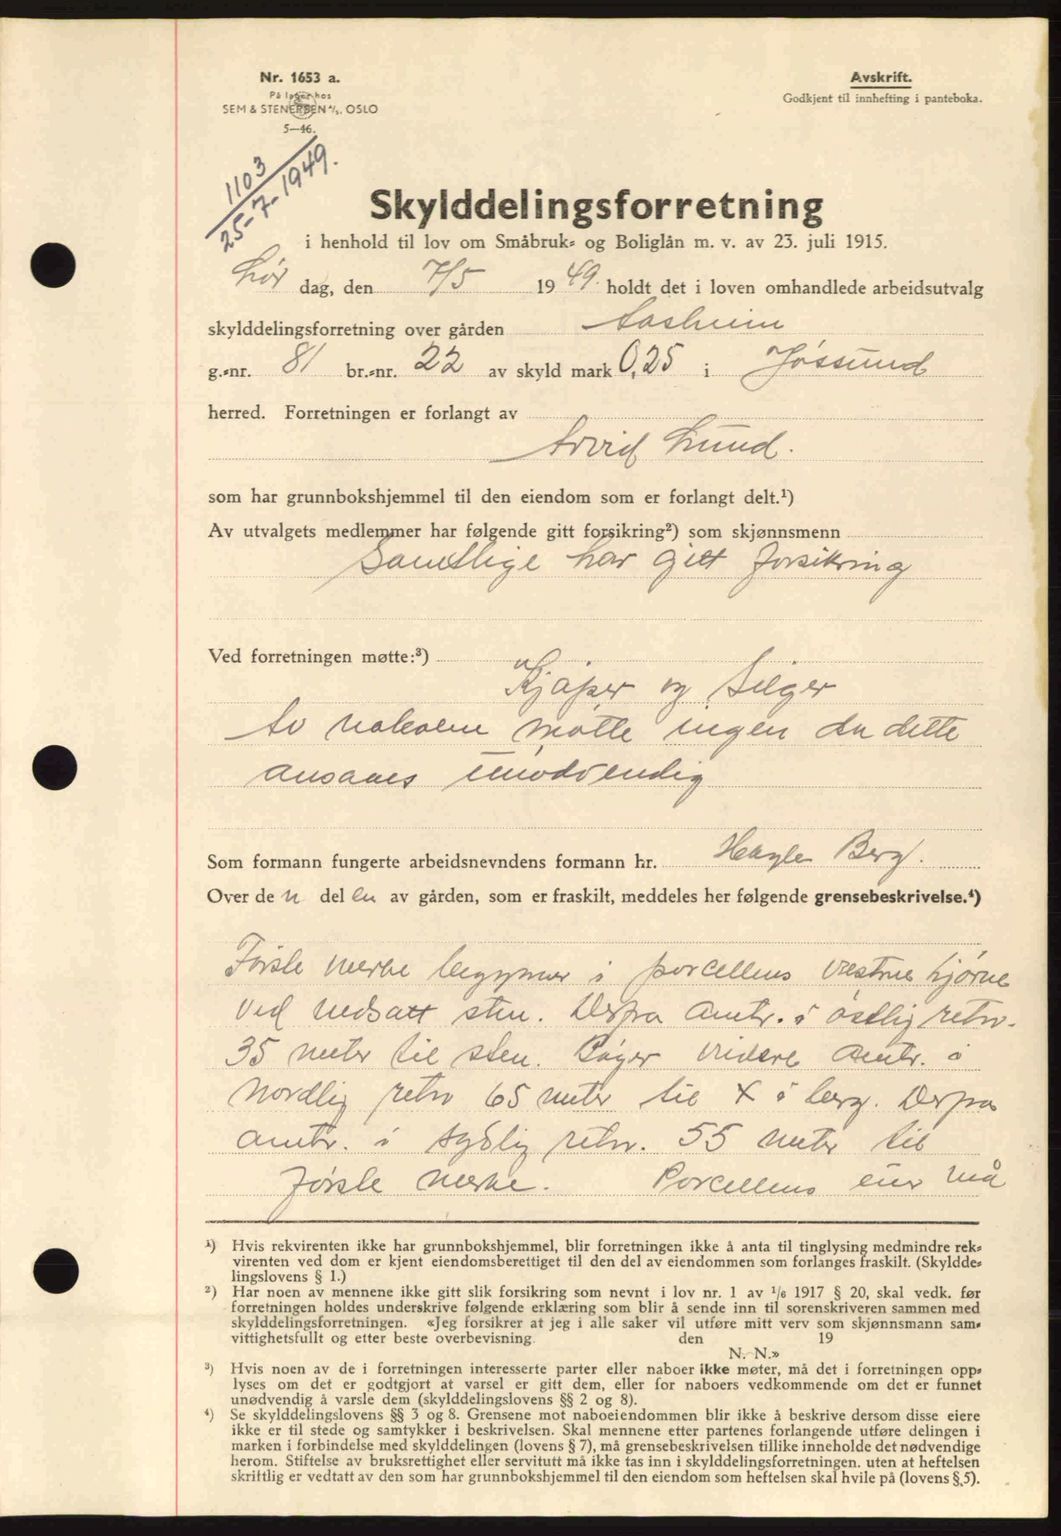 Nr. 1653 a.
På lager hos
SEM & STENERSEN A/S, OSLO
5—46.
Avskrift.
Godkjent til innhefting i panteboka.
1103
25-7-1949.
Skylddelingsforretning
i henhold til lov om Småbruk- og Boliglån m. v. av 23. juli 1915.
Lør dag, den 7/5 1949. holdt det i loven omhandlede arbeidsutvalg
skylddelingsforretning over gården Aasheim
g.-nr. 81 br.-nr. 22 av skyld mark 0,25 i Jøssund
herred. Forretningen er forlangt av
Arvid Lund.
som har grunnbokshjemmel til den eiendom som er forlangt delt.¹)
Av utvalgets medlemmer har følgende gitt forsikring²) som skjønnsmenn
Samtlige har gitt forsikring
Ved forretningen møtte:³)
Kjøper og Selger
Av naboene møtte ingen da dette
ansaaes unødvendig
Som formann fungerte arbeidsnevndens formann hr. Berg.
Over de n del en av gården, som er fraskilt, meddeles her følgende grensebeskrivelse.⁴)
Første merke begynner i parcellens vestre hjørne
ved nedsatt sten. Derfra omtr. i østlig retn.
35 meter til sten. Bøyer videre omtr. i
nordlig retn 65 meter til X i berg. Derfra
omtr. i sydlig retn. 55 meter til
første merke. Parcellens eier må
¹) Hvis rekvirenten ikke har grunnbokshjemmel, blir forretningen ikke å anta til tinglysing medmindre rek-
virenten ved dom er kjent eiendomsberettiget til den del av eiendommen som forlanges fraskilt. (Skyldde-
lingslovens § 1.)
²) Har noen av mennene ikke gitt slik forsikring som nevnt i lov nr. 1 av 1/6 1917 § 20, skal vedk. før
forretningen holdes underskrive følgende erklæring som blir å sende inn til sorenskriveren sammen med
skylddelingsforretningen. «Jeg forsikrer at jeg i alle saker vil utføre mitt verv som skjønnsmann sam-
vittighetsfullt og etter beste overbevisning den 19
N. N.»
³) Hvis noen av de i forretningen interesserte parter eller naboer ikke møter, må det i forretningen opp-
lyses om det er godtgjort at varsel er gitt dem, eller for naboers vedkommende om det er funnet
unødvendig å varsle dem (skylddelingslovens §§ 2 og 8).
⁴) Se skylddelingslovens §§ 3 og 8. Grensene mot naboeiendommen blir ikke å beskrive dersom disse eiere
ikke er til stede og samtykker i beskrivelsen. Skal mennene etter partenes forlangende utføre delingen i
marken i forbindelse med skylddelingen (lovens § 7), må grensebeskrivelsen tillike inneholde det nødvendige
herom. Stiftelse av bruksrettighet eller servitutt må ikke tas inn i skylddelingsforretningen. uten at heftelsen
skriftlig er vedtatt av den som har grunnbokshjemmel til den eiendom som heftelsen skal hvile på (lovens § 5).